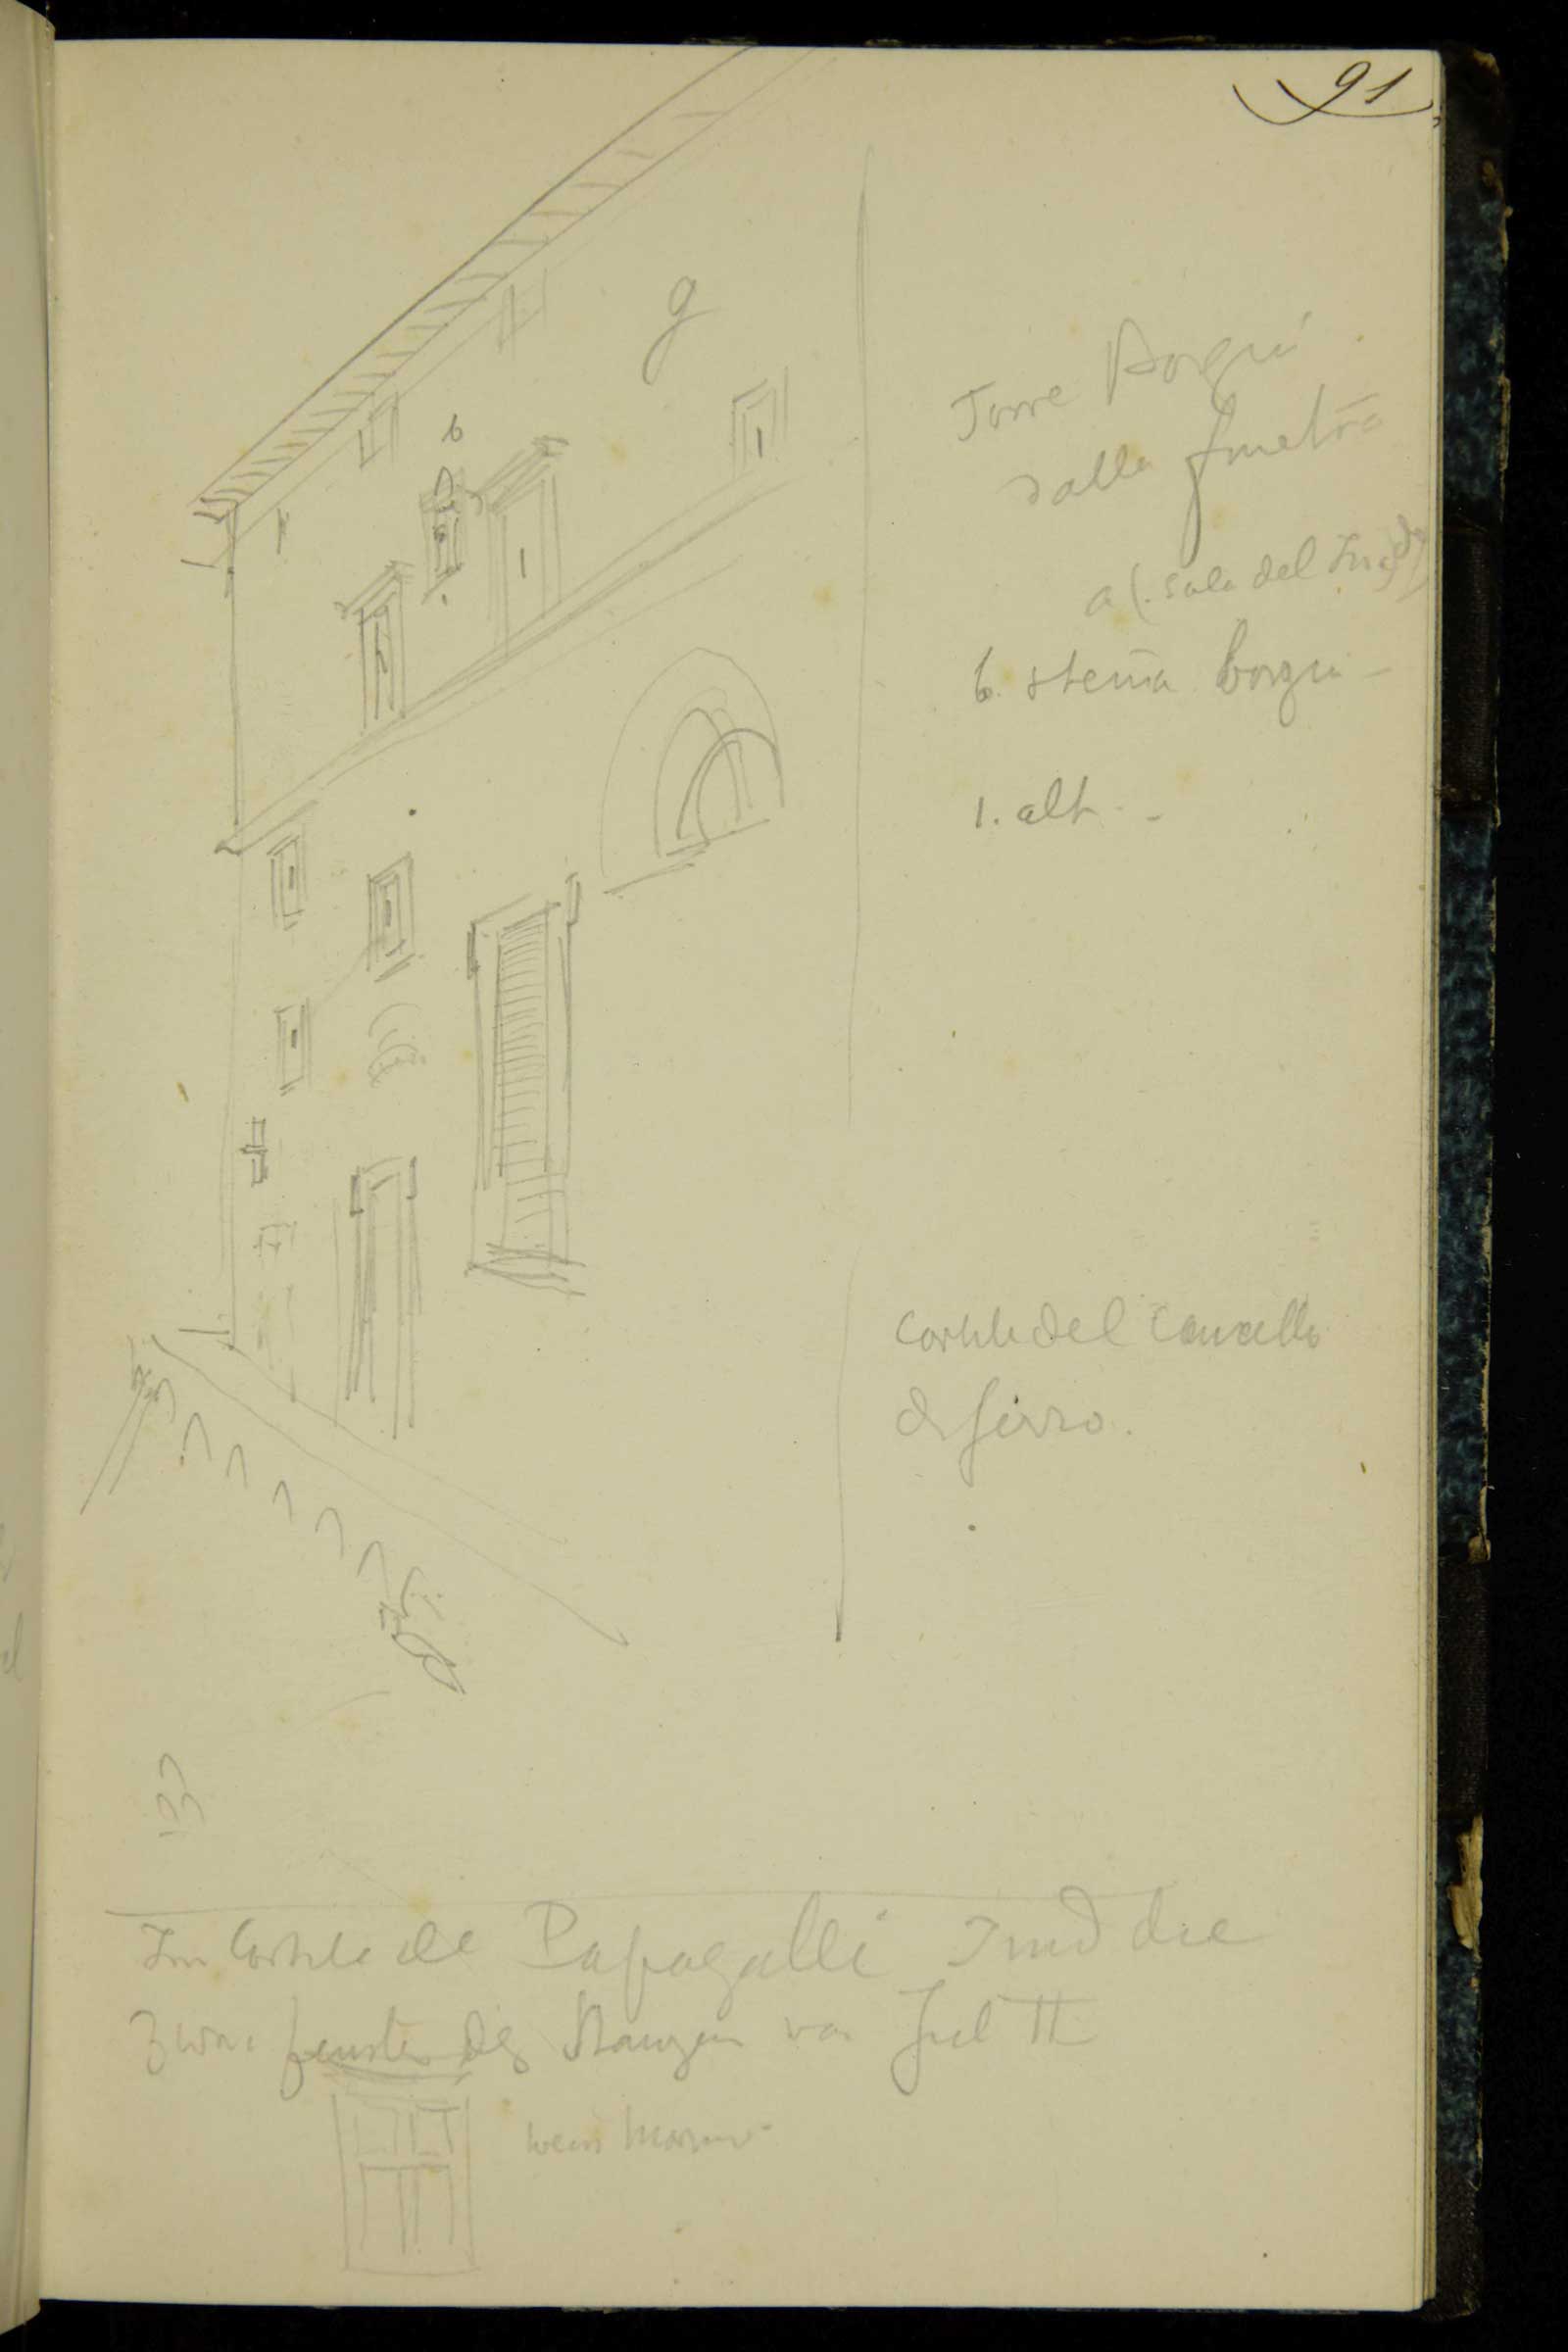 91
g
b
Torre Borgia
dalla finestra
a (. sala del
b. stema borgia -
1. alt. -
Cortile del Cancello
di ferro.
Im Cortile del Papagalli sind die
zwei fenster der Stanzen von Jul II
weiss Marmor